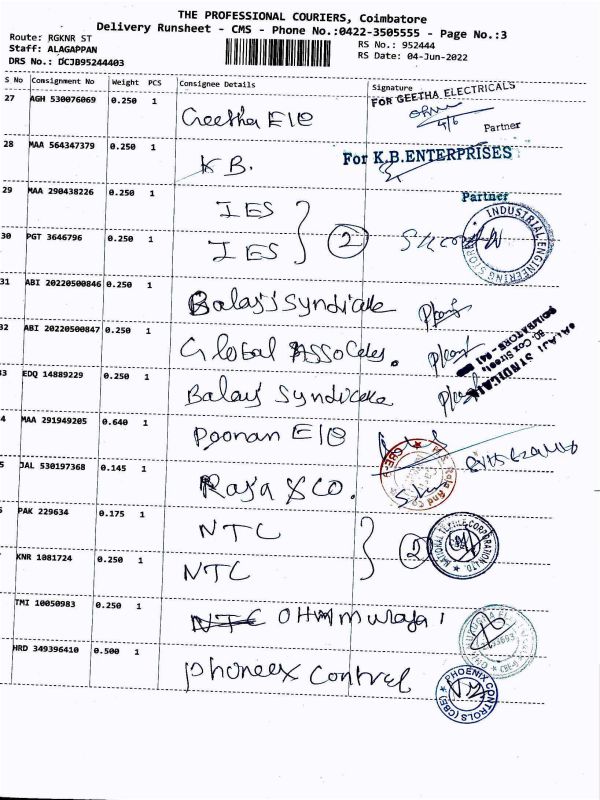 THE PROFESSIONAL COURIERS, Coimbatore
Delivery Runsheet - CMS - Phone No.:0422-3505555 - Page No.:3
Route: RGKNR ST
Staff: ALAGAPPAN
RS No.: 952444
DRS No.: DCJB95244403
RS Date: 04-Jun-2022
S No Consignment No Weight PCS Consignee Details Signature
27 AGH 530076069 0.250 1 Geetha E/C FOR GEETHA ELECTRICALS
4/6 Partner
28 MAA 564347379 0.250 1 K B. For K.B.ENTERPRISES
Partner
29 MAA 290438226 0.250 1 IES
INDUSTRIAL ENGINEERING STORES
30 PGT 3646796 0.250 1 IES 2
31 ABI 20220500846 0.250 1 Balaji Syndicate
32 ABI 20220500847 0.250 1 Global Assocites.
BALAJI SYNDICATE
80, Cox Street,
COIMBATORE
3 EDQ 14889229 0.250 1 Balaji Syndicate
4 MAA 291949205 0.640 1 Poonan E/C
5 JAL 530197368 0.145 1 Raja & Co.
PAK 229634 0.175 1 NTC
2 NATIONAL TEXTILE CORPORATION LTD.
KNR 1081724 0.250 1 NTC
TMI 10050983 0.250 1 NTC
HRD 349396410 0.500 1 phoneex Control
PHOENIX CONTROLS (CBE)